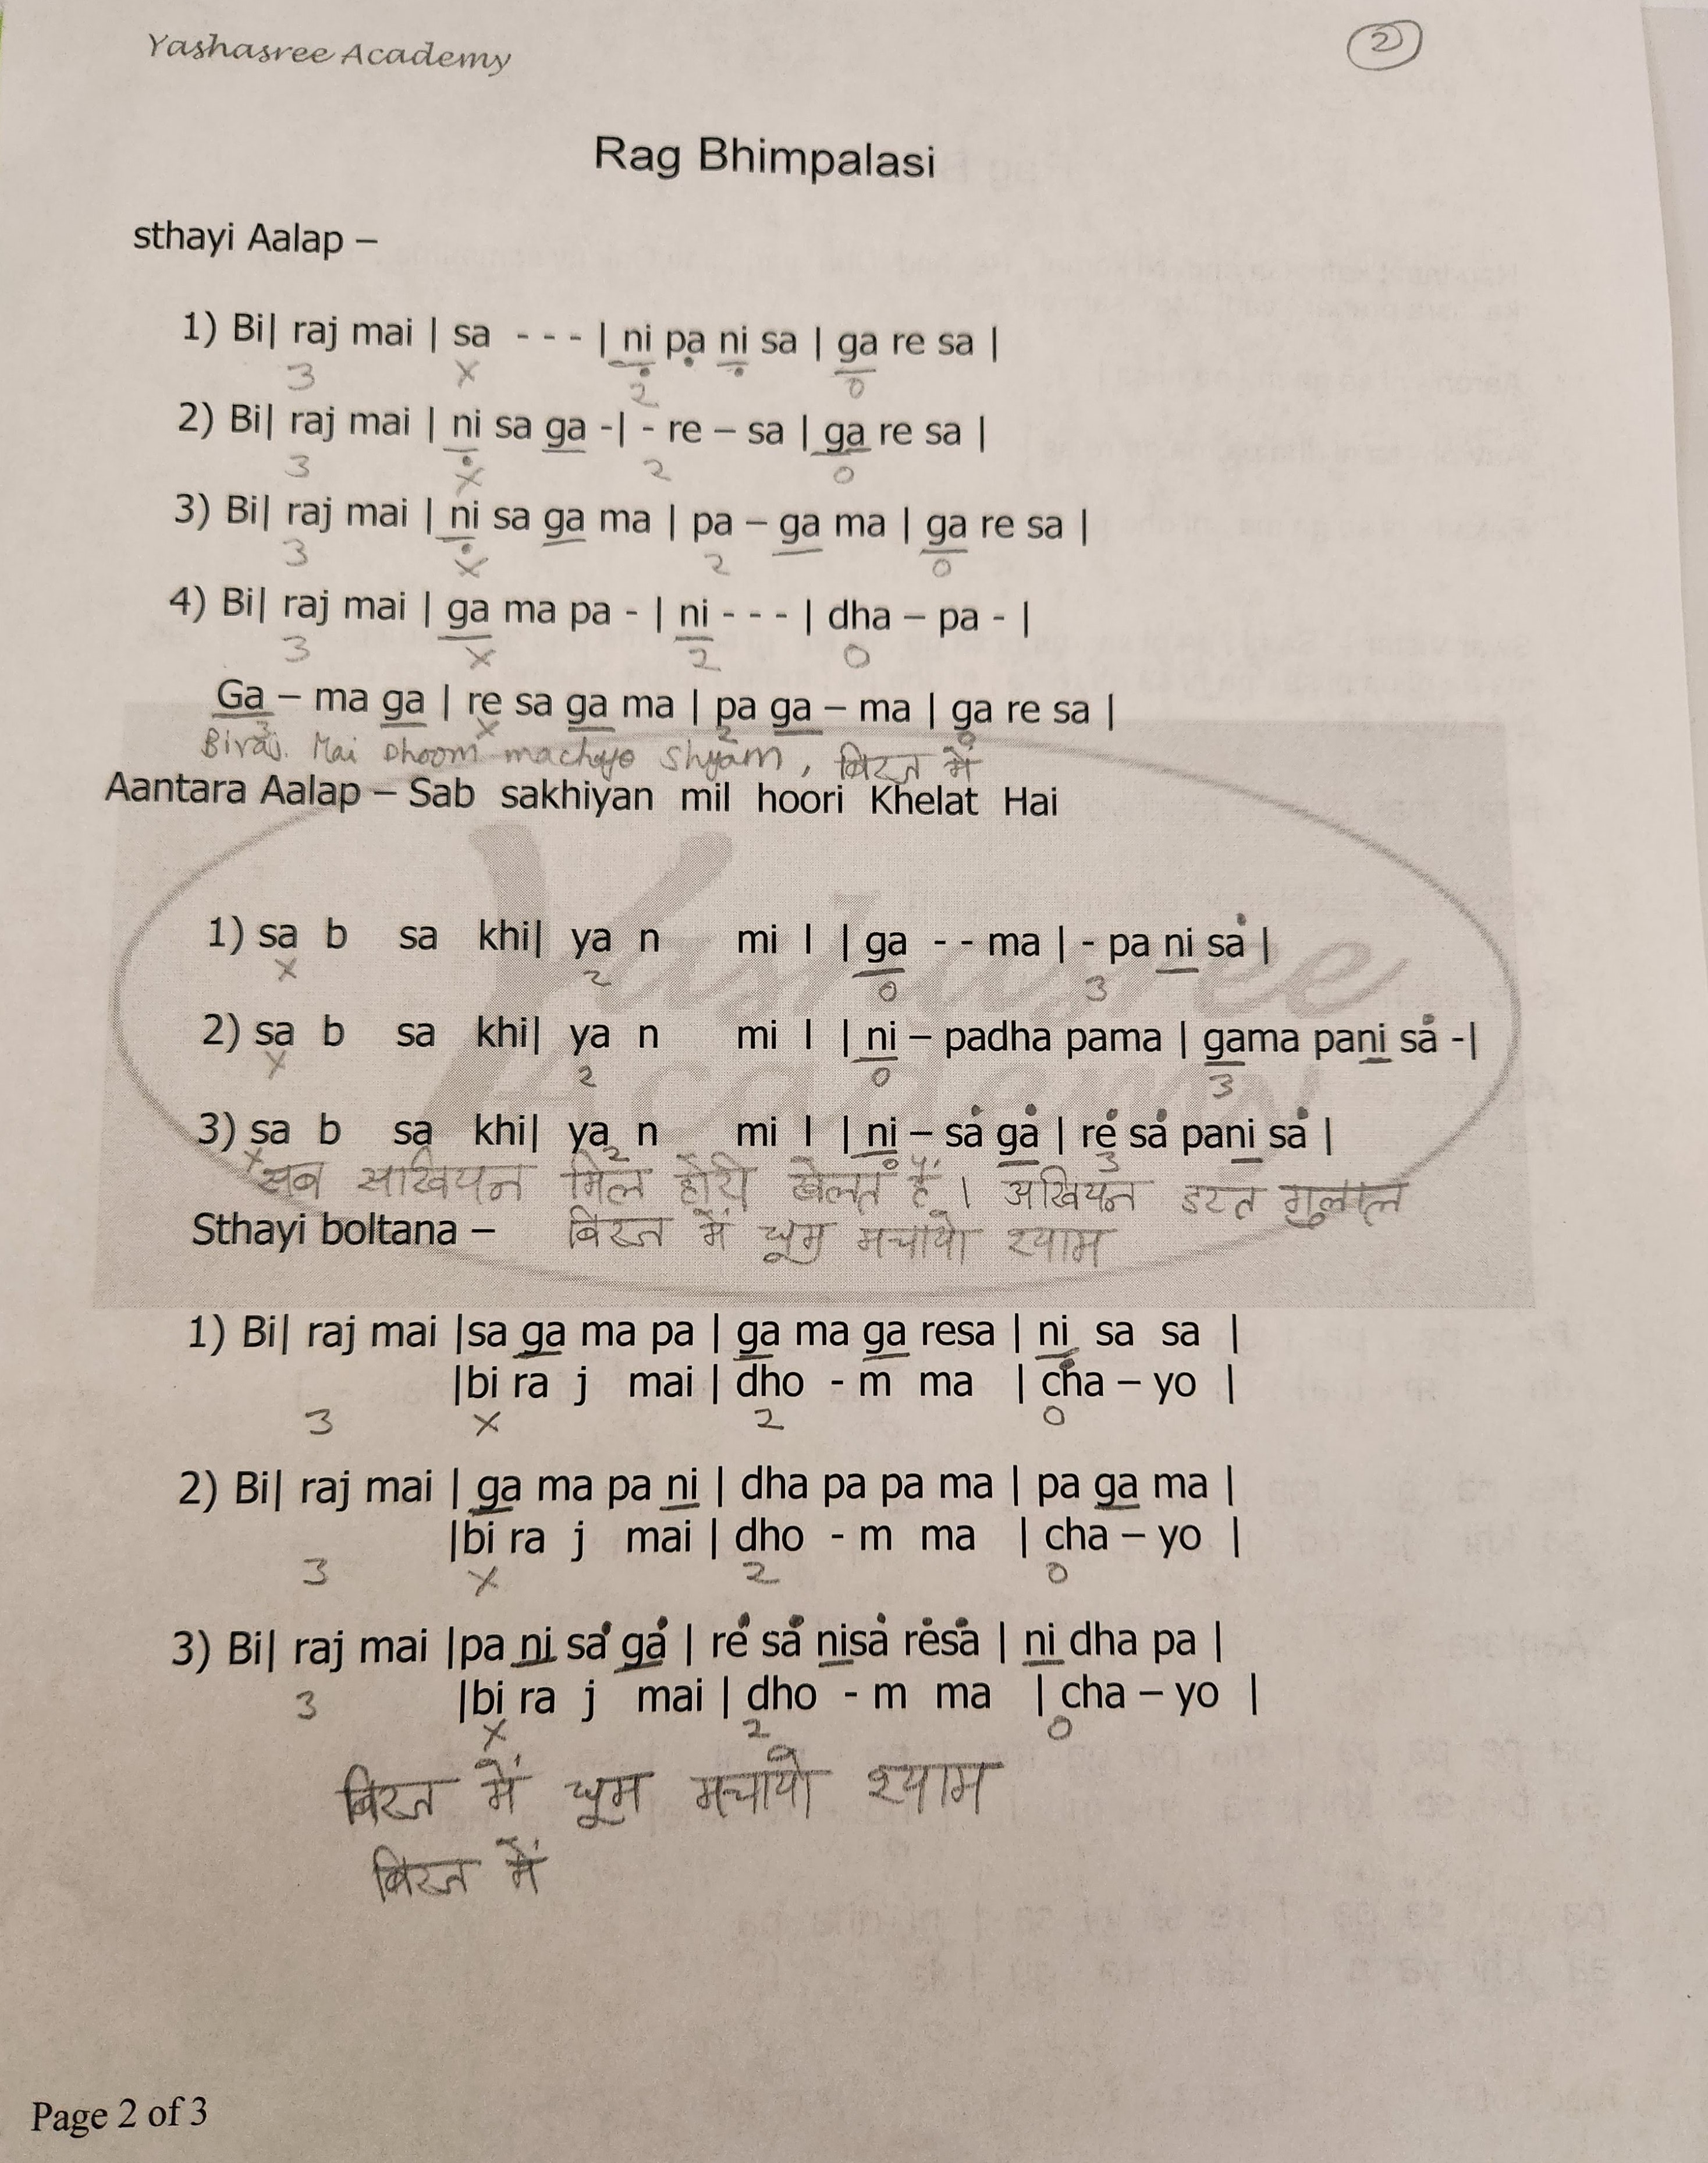 Yashasree Academy
2
Rag Bhimpalasi
sthayi Aalap –
1) Bi| raj mai | sa - - - | ni pa ni sa | ga re sa |
3 x 2 0
2) Bi| raj mai | ni sa ga -| - re – sa | ga re sa |
3 x 2 0
3) Bi| raj mai | ni sa ga ma | pa – ga ma | ga re sa |
3 x 2 0
4) Bi| raj mai | ga ma pa - | ni - - - | dha – pa - |
3 x 2 0
Ga – ma ga | re sa ga ma | pa ga – ma | ga re sa |
3 x 2 0
Biraj. Mai Dhoom machayo Shyam, बिरज में
Aantara Aalap – Sab sakhiyan mil hoori Khelat Hai
Yashasree
Academy
1) sa b sa khi| ya n mi l | ga - - ma | - pa ni sa |
x 2 0 3
2) sa b sa khi| ya n mi l | ni – padha pama | gama pani sa -|
x 2 0 3
3) sa b sa khi| ya n mi l | ni – sa ga | re sa pani sa |
x 2 0 3
सब सखियन मिल होरी खेलत हैं । अखियन डरत गुलाल
Sthayi boltana – बिरज में धूम मचायो श्याम
1) Bi| raj mai |sa ga ma pa | ga ma ga resa | ni sa sa |
|bi ra j mai | dho - m ma | cha – yo |
3 x 2 0
2) Bi| raj mai | ga ma pa ni | dha pa pa ma | pa ga ma |
|bi ra j mai | dho - m ma | cha – yo |
3 x 2 0
3) Bi| raj mai |pa ni sa ga | re sa nisa resa | ni dha pa |
|bi ra j mai | dho - m ma | cha – yo |
3 x 2 0
बिरज में धूम मचायो श्याम
बिरज में
Page 2 of 3